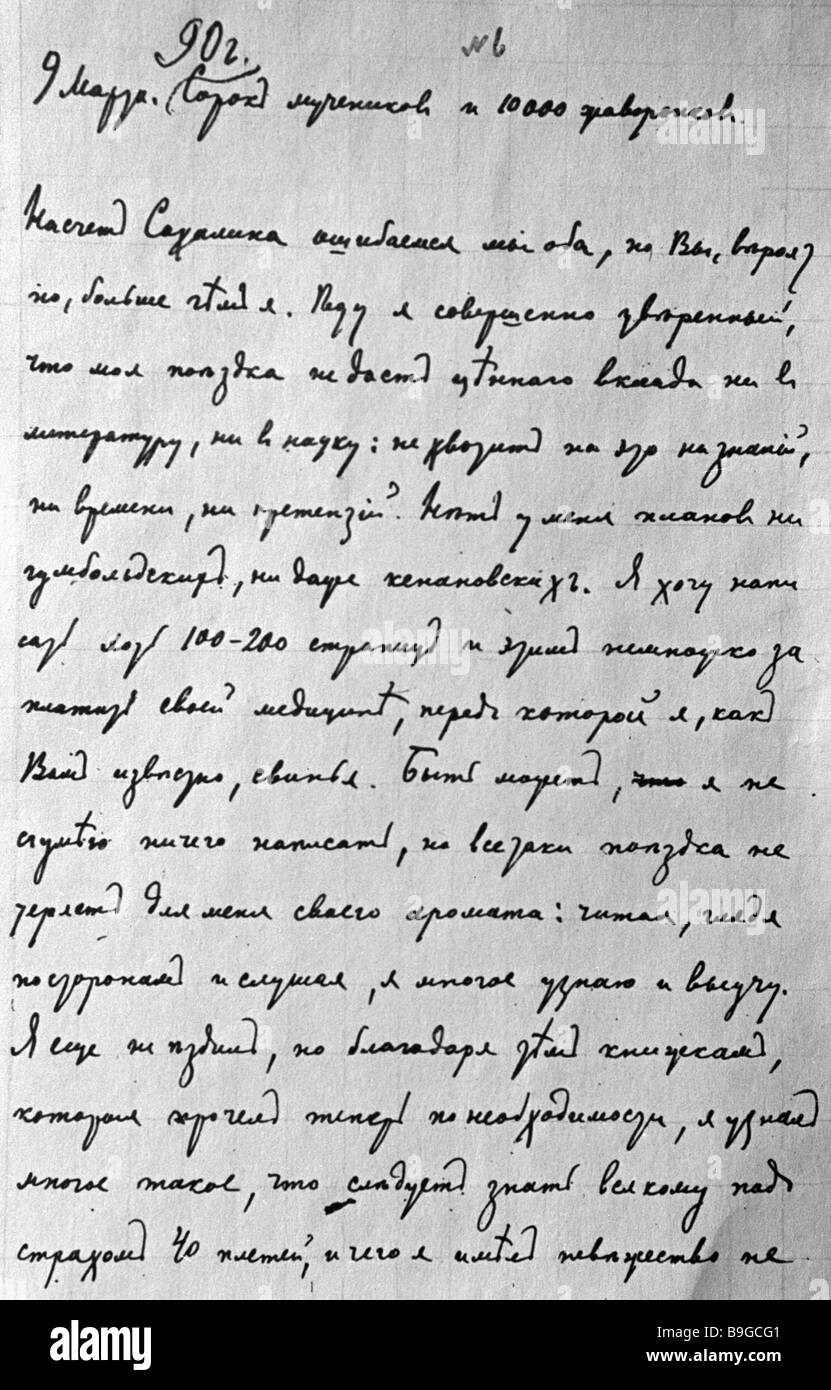 90 г.
№ 6
9 Марта. Сорокъ мучениковъ и 10000 жаворонковъ.
Насчетъ Сахалина ошибаемся мы оба, но Вы, вѣроят
но, больше чѣмъ я. Ѣду я совершенно увѣренный,
что моя поѣздка не дастъ цѣннаго вклада ни въ
литературу, ни въ науку: не хватитъ на это ни знаній,
ни времени, ни претензій. Нѣтъ у меня плановъ ни
гумбольдскихъ, ни даже кенановскихъ. Я хочу напи
сать хоть 100-200 страницъ и этимъ немножко за
платить своей медицинѣ, передъ которой я, какъ
Вамъ извѣстно, свинья. Быть можетъ, что я не
сумѣю ничего написать, но всетаки поѣздка не
теряетъ для меня своего аромата: читая, глядя
по сторонамъ и слушая, я многое узнаю и выучу.
Я еще не ѣздилъ, но благодаря тѣмъ книжкамъ,
которыя прочелъ теперь по необходимости, я узналъ
многое такое, что слѣдуетъ знать всякому подъ
страхомъ 40 плетей, и чего я имѣлъ невѣжество не
alamy
alamy
alamy
alamy
Image ID: B9GCG1
www.alamy.com